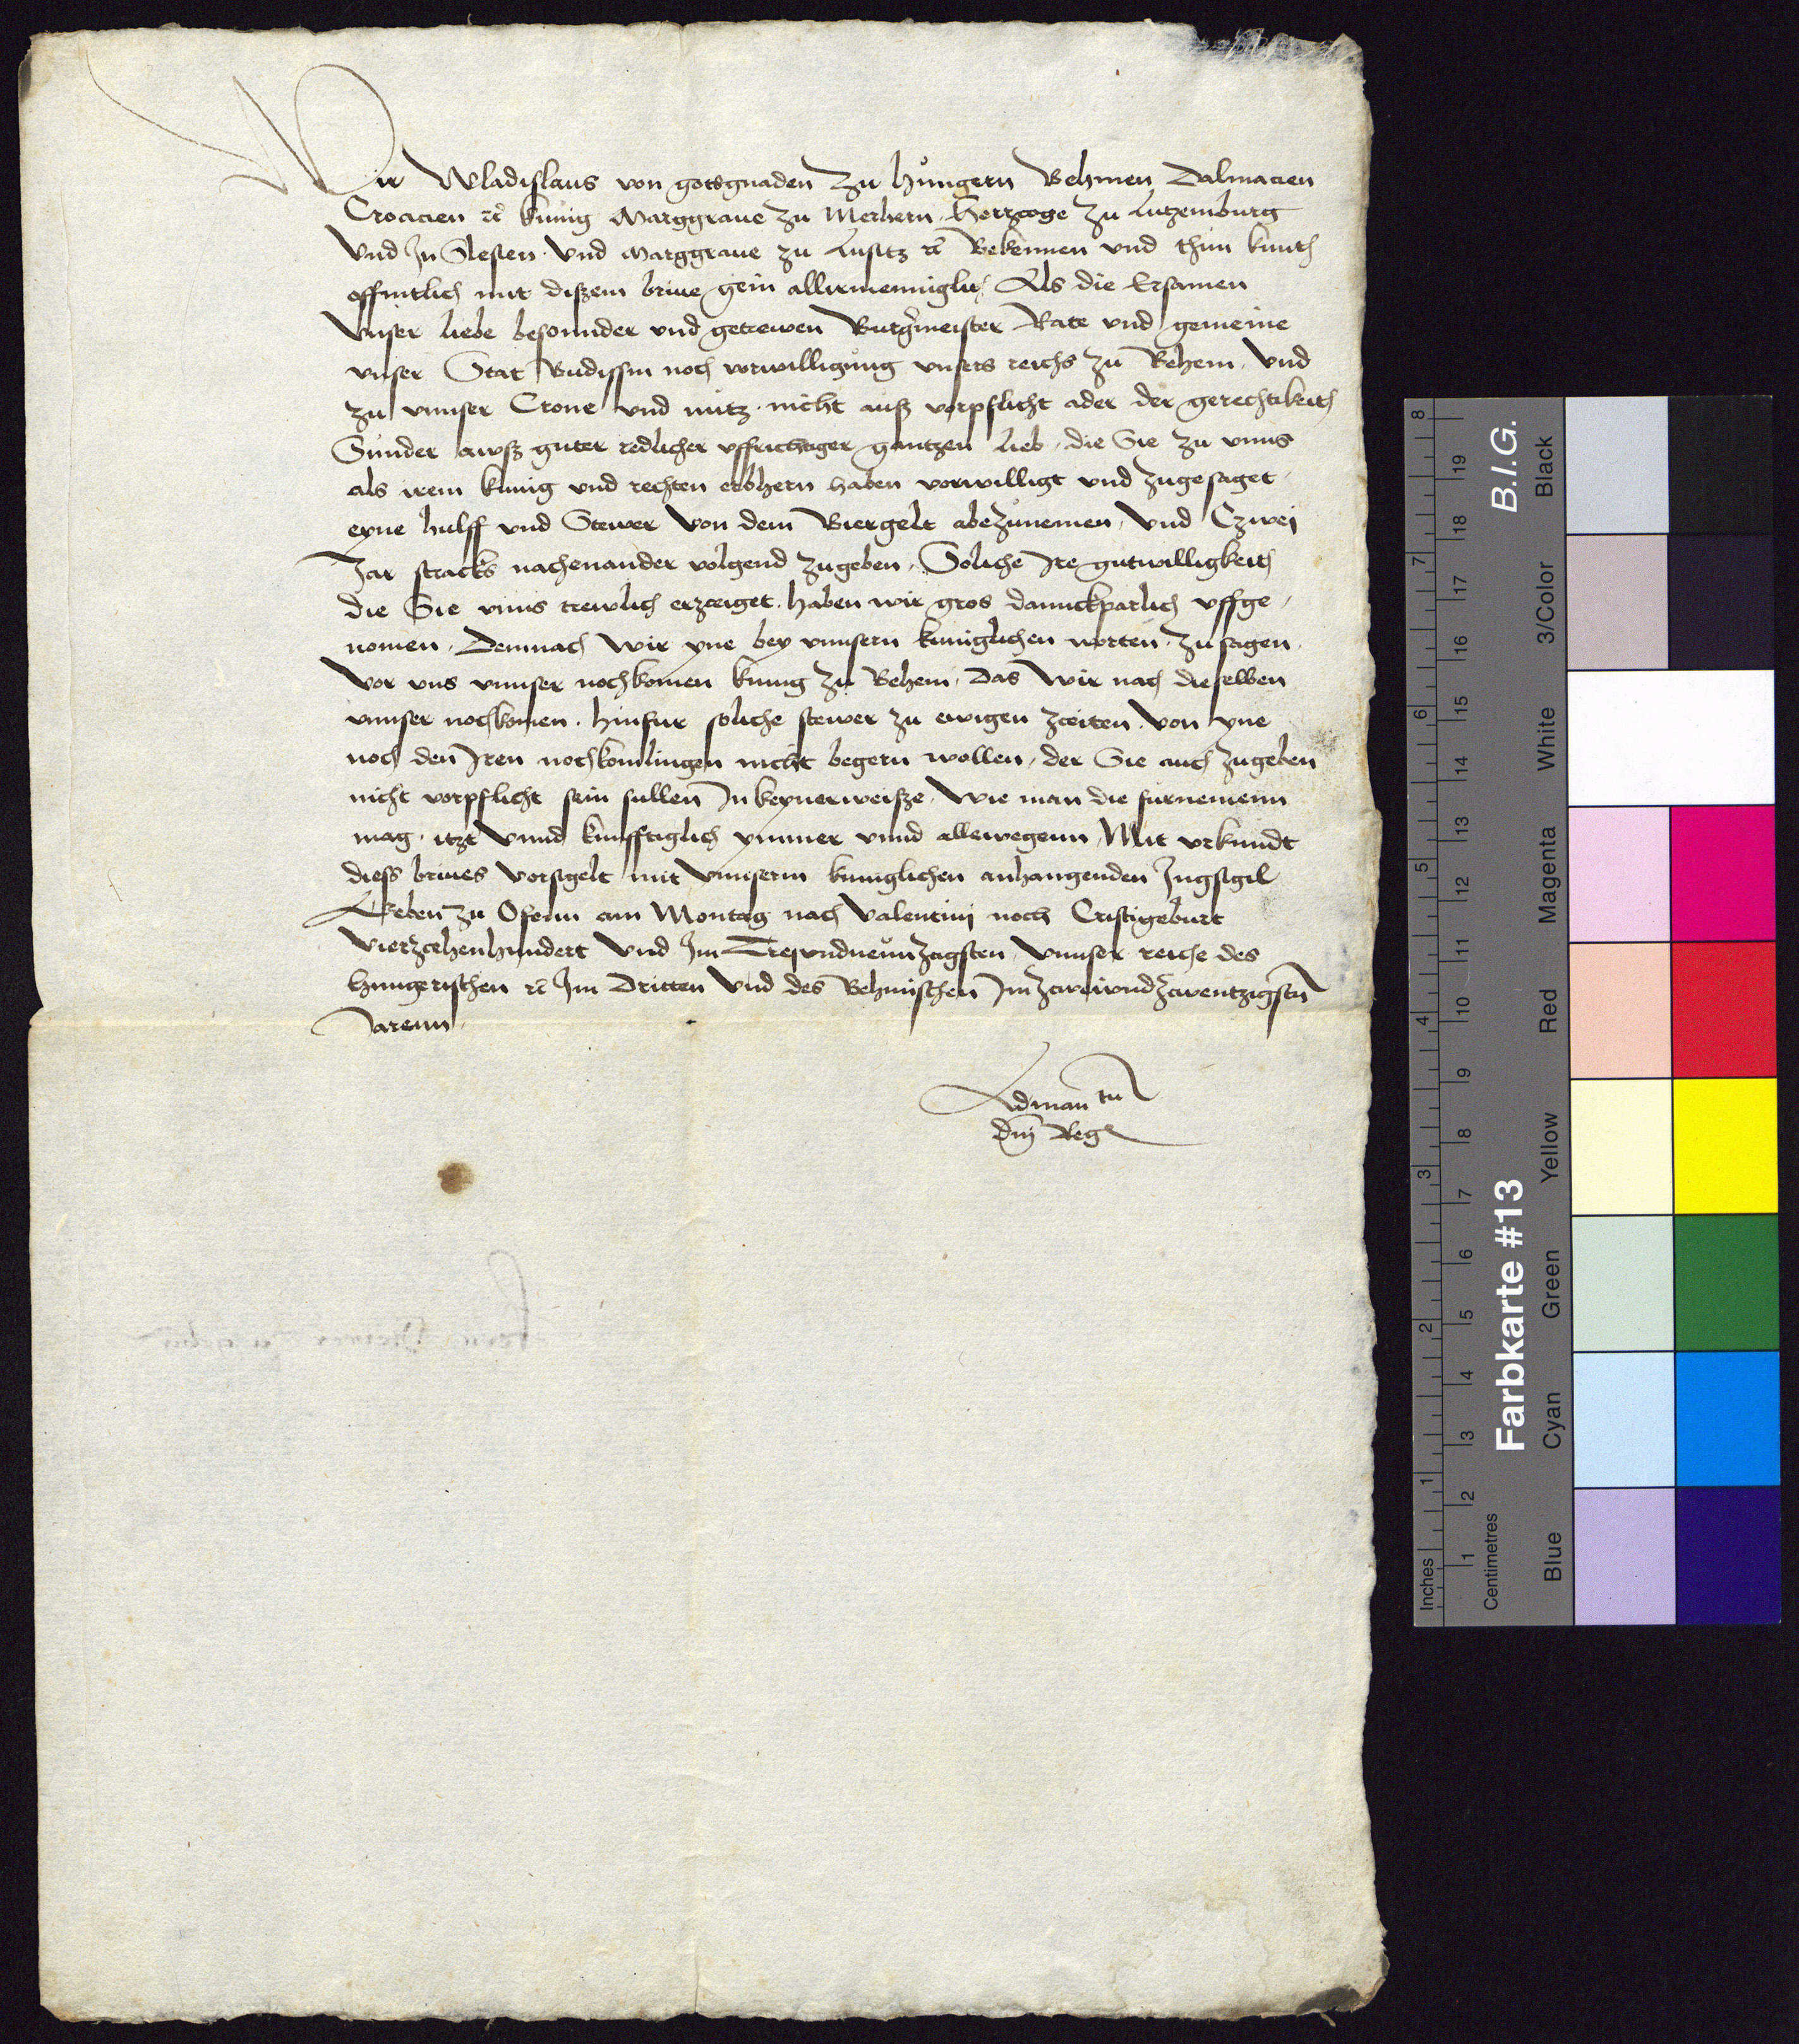 Wir Wladislaus von gotsgnaden zu hungern Behmen Dalmacien
Croacien ꝛc̄ kunig Marggraue zu Merhern Hertzoge zu Lutzemburg
Vnd In Slesien Vnd Marggraue zu Lusitz ꝛc̄ Bekennen vnd thun kunth
offintlich mit diszem briue gein allirmenniglich Als die Ersamen
Vnser liebe besonnder vnd getrewen Burgermeister Rate vnd gemeine
vnser Stat Budissin noch vorwilligung vnsers reichs zu Behem Vnd
zu vnnser Crone vnd nutz nicht ausz vorpflicht ader der gerechtikeith
Sunder awsz guter redlicher vffrichtiger gantzen lieb die Sie zu vnns
als irem kunig vnd rechten erbhern haben vorwilligt vnd zugesaget
eyne hulff vnd Stewer Von dem Biergelt abezunemen Vnd Czwej
Jar stracks nachenander volgend zugeben Soliche Ire gutwilligkeith
die Sie vnns trewlich erzceiget haben wir gros dannckparlich vffge
nomen Demnach Wir yne bey vnnsern kuniglichen worten zu sagen
Vor vns vnnser nochkomen kunig zu Behem Das Wir nach dieselben
vnnser nochkomen hinfur soliche stewer zu ewigen zceiten von yne
noch den Iren nochkomlingen nicht begern wollen der Sie auch zugeben
nicht vorpflicht sein sullen In keynerweisze Wie man die furnemenn
mag itzt Vnnd kunfftiglich ymmer vnnd allewegenn Mit vrkundt
diess briues Vorsigelt mit Vnnserm kuniglichen anhangenden Ingsigil
Geben zu Ofenn am Montag nach Valentinj noch Cristigeburt
Vierzcehenhundert Vnd Im Dreyvndneunzcigsten Vnnser reiche des
hungerischen ꝛc̄ Im Dritten Vnd des Behmischen Im zcweivndzcwentzigsten
Jarenn
Ad man
dnj Reg
Farbkarte #13
B.I.G.
Inches 1 2 3 4 5 6 7 8
Centimetres 1 2 3 4 5 6 7 8 9 10 11 12 13 14 15 16 17 18 19
Blue Cyan Green Yellow Red Magenta White 3/Color Black